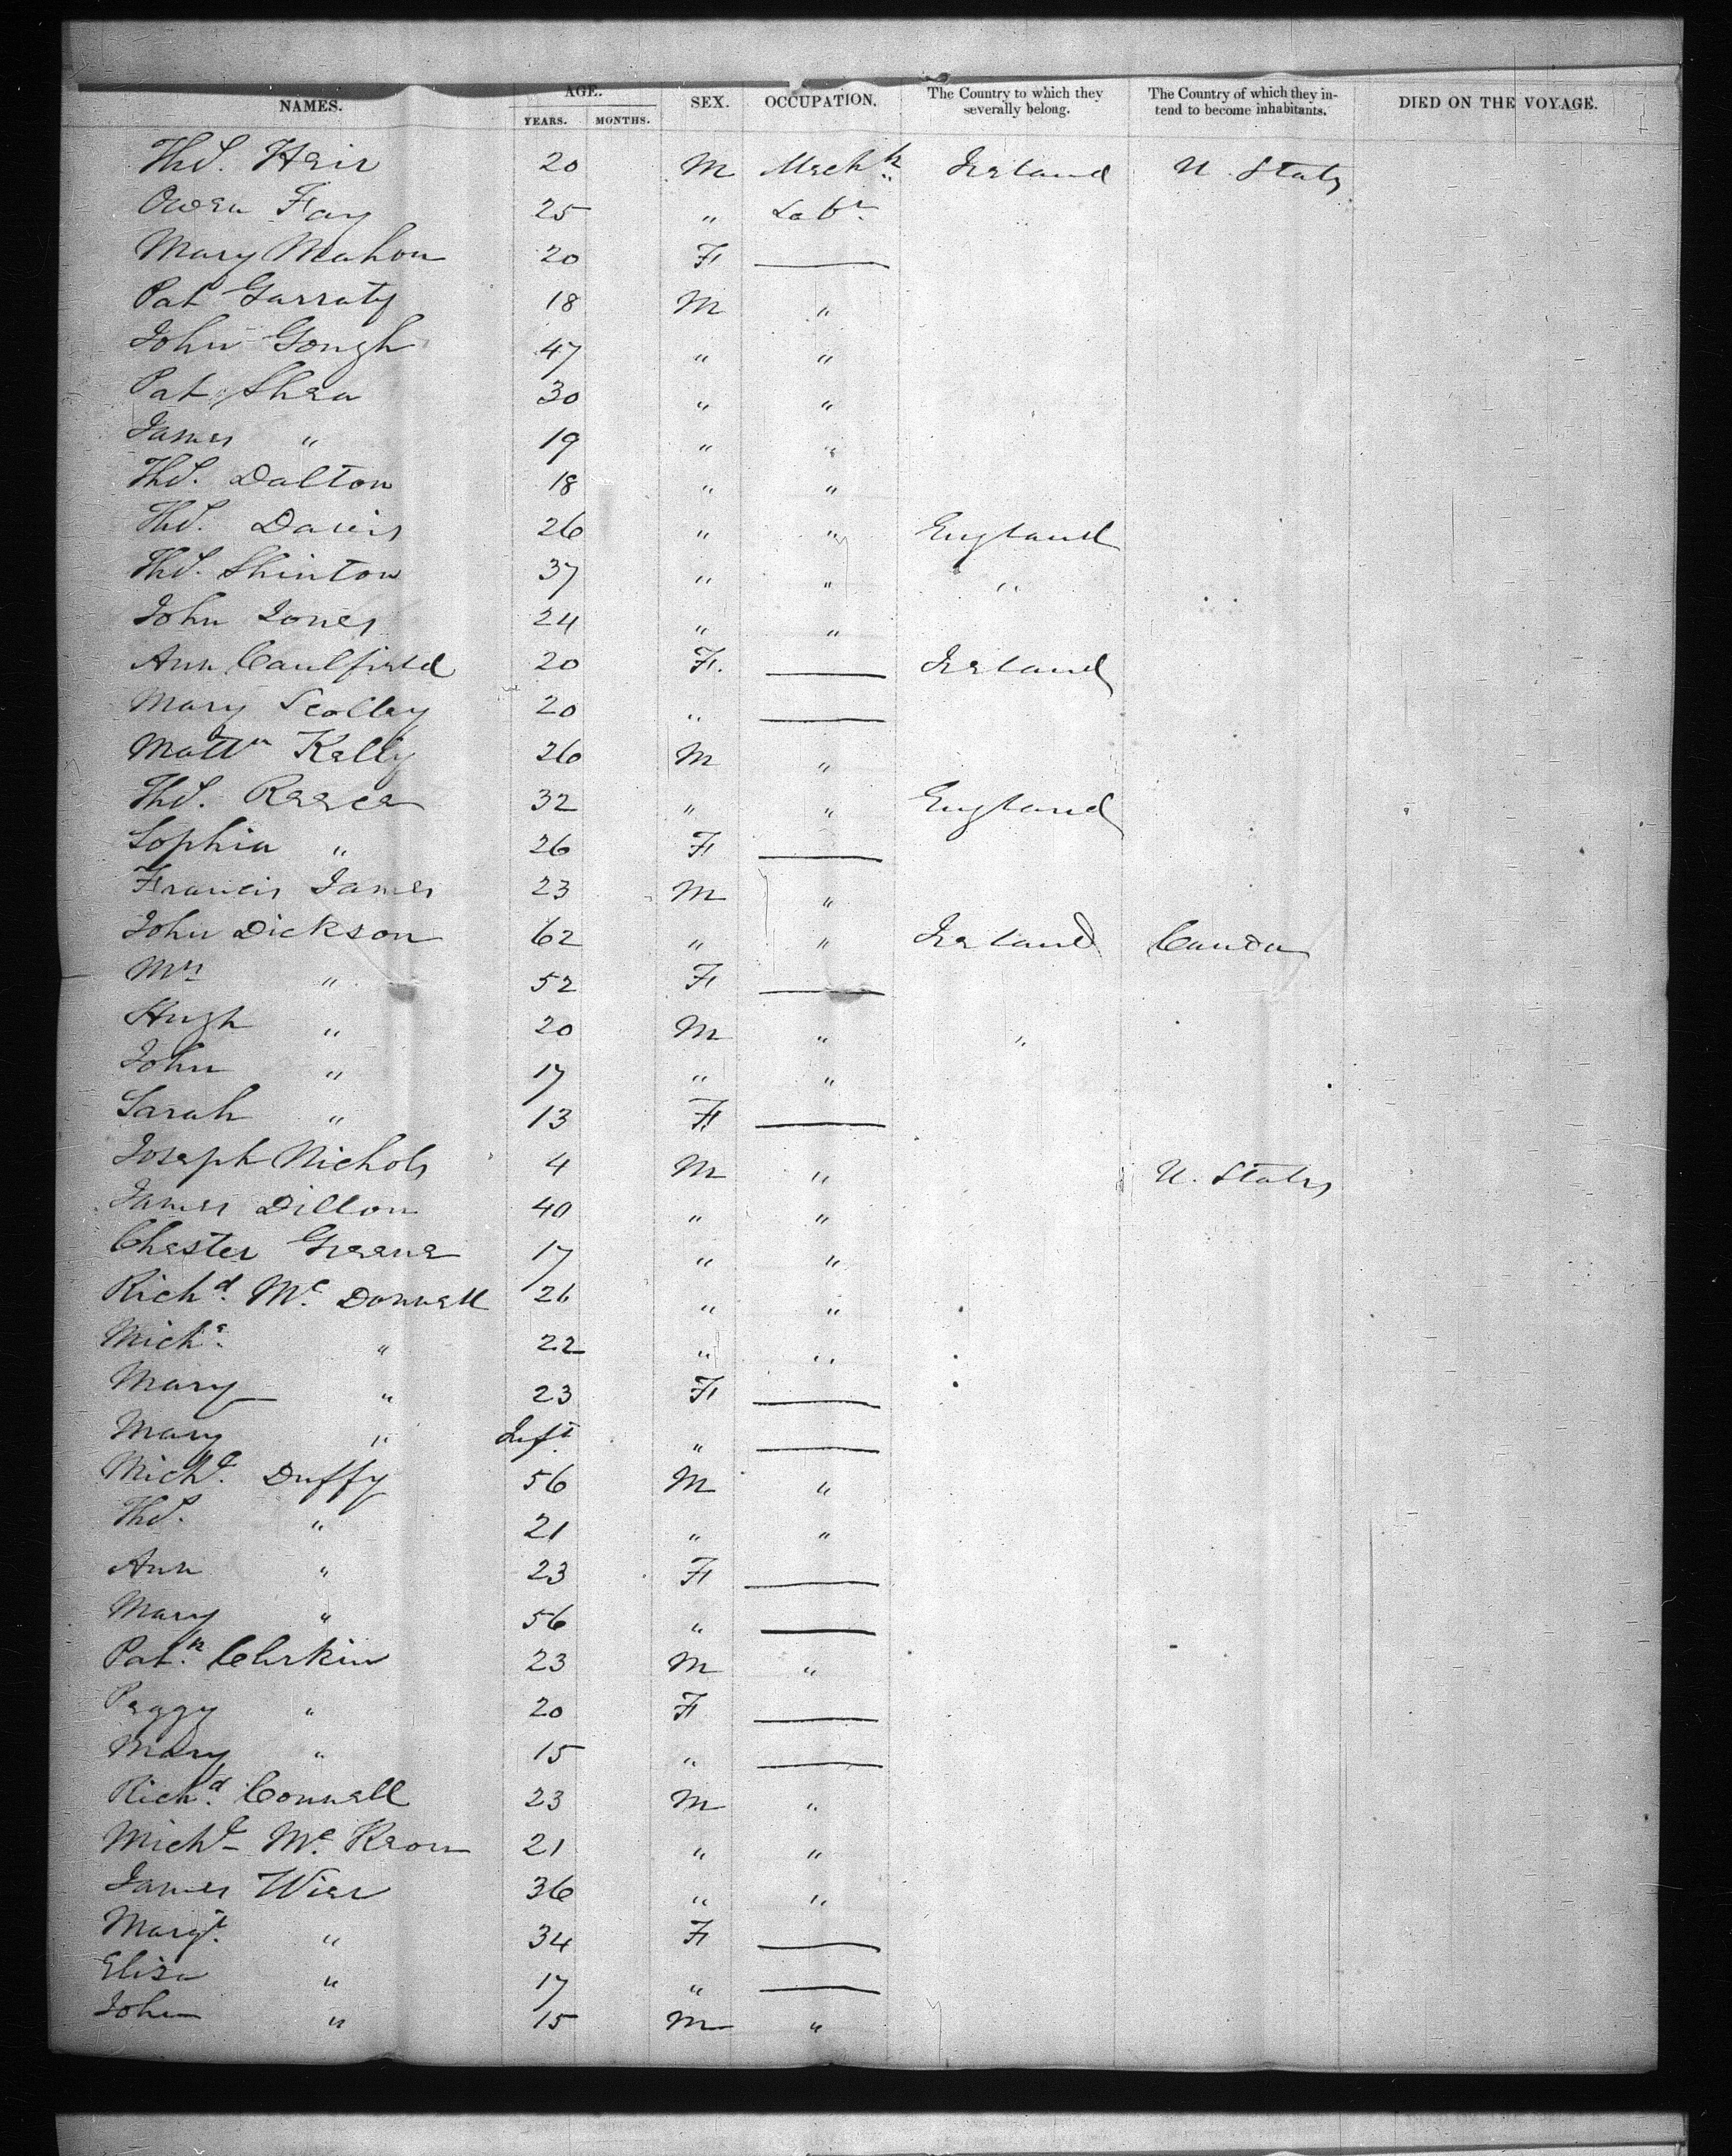 NAMES. AGE. YEARS. MONTHS. SEX. OCCUPATION. The Country to which they severally belong. The Country of which they intend to become inhabitants. DIED ON THE VOYAGE.
Thos. Hair 20 M Mechk Ireland U. States
Owen Fay 25 " Labr
Mary Mahon 20 F —
Pat Garraty 18 M "
John Gough 47 " "
Pat Shea 30 " "
James " 19 " "
Thos. Dalton 18 " "
Thos. Davis 26 " " England
Thos. Shinton 37 " " "
John Jones 24 " "
Ann Caulfield 20 F. — Ireland
Mary Scolley 20 " —
Mattw Kelly 26 M "
Thos. Reece 32 " " England
Sophia " 26 F —
Francis James 23 M "
John Dickson 62 " " Ireland Canda
Mrs " 52 F —
Hugh " 20 M " "
John " 17 " "
Sarah " 13 F —
Joseph Nichols 4 M " U. States
James Dillon 40 " "
Chester Greene 17 " "
Richd. Mc Donnell 26 " "
Michl. " 22 " "
Mary " 23 F —
Mary " Inft " —
Michl. Duffy 56 M "
Thos. " 21 " "
Ann " 23 F —
Mary " 56 " —
Patk. Clerkin 23 M "
Peggy " 20 F —
Mary " 15 " —
Richd. Connell 23 M "
Michl Mc Keon 21 " "
James Wier 36 " "
Margt. " 34 F —
Eliza " 17 " —
John " 15 M "